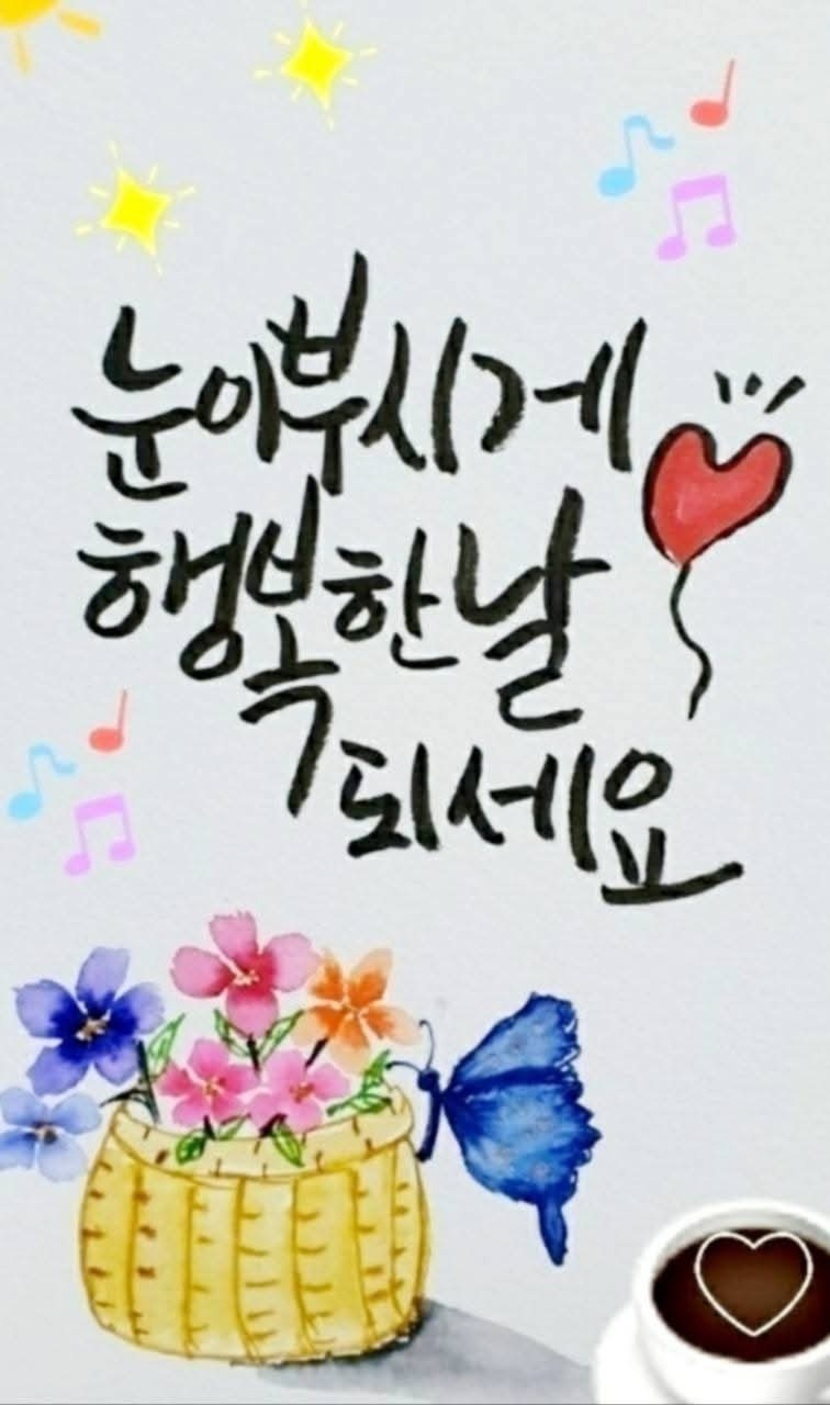 눈이부시게
행복한날
되세요